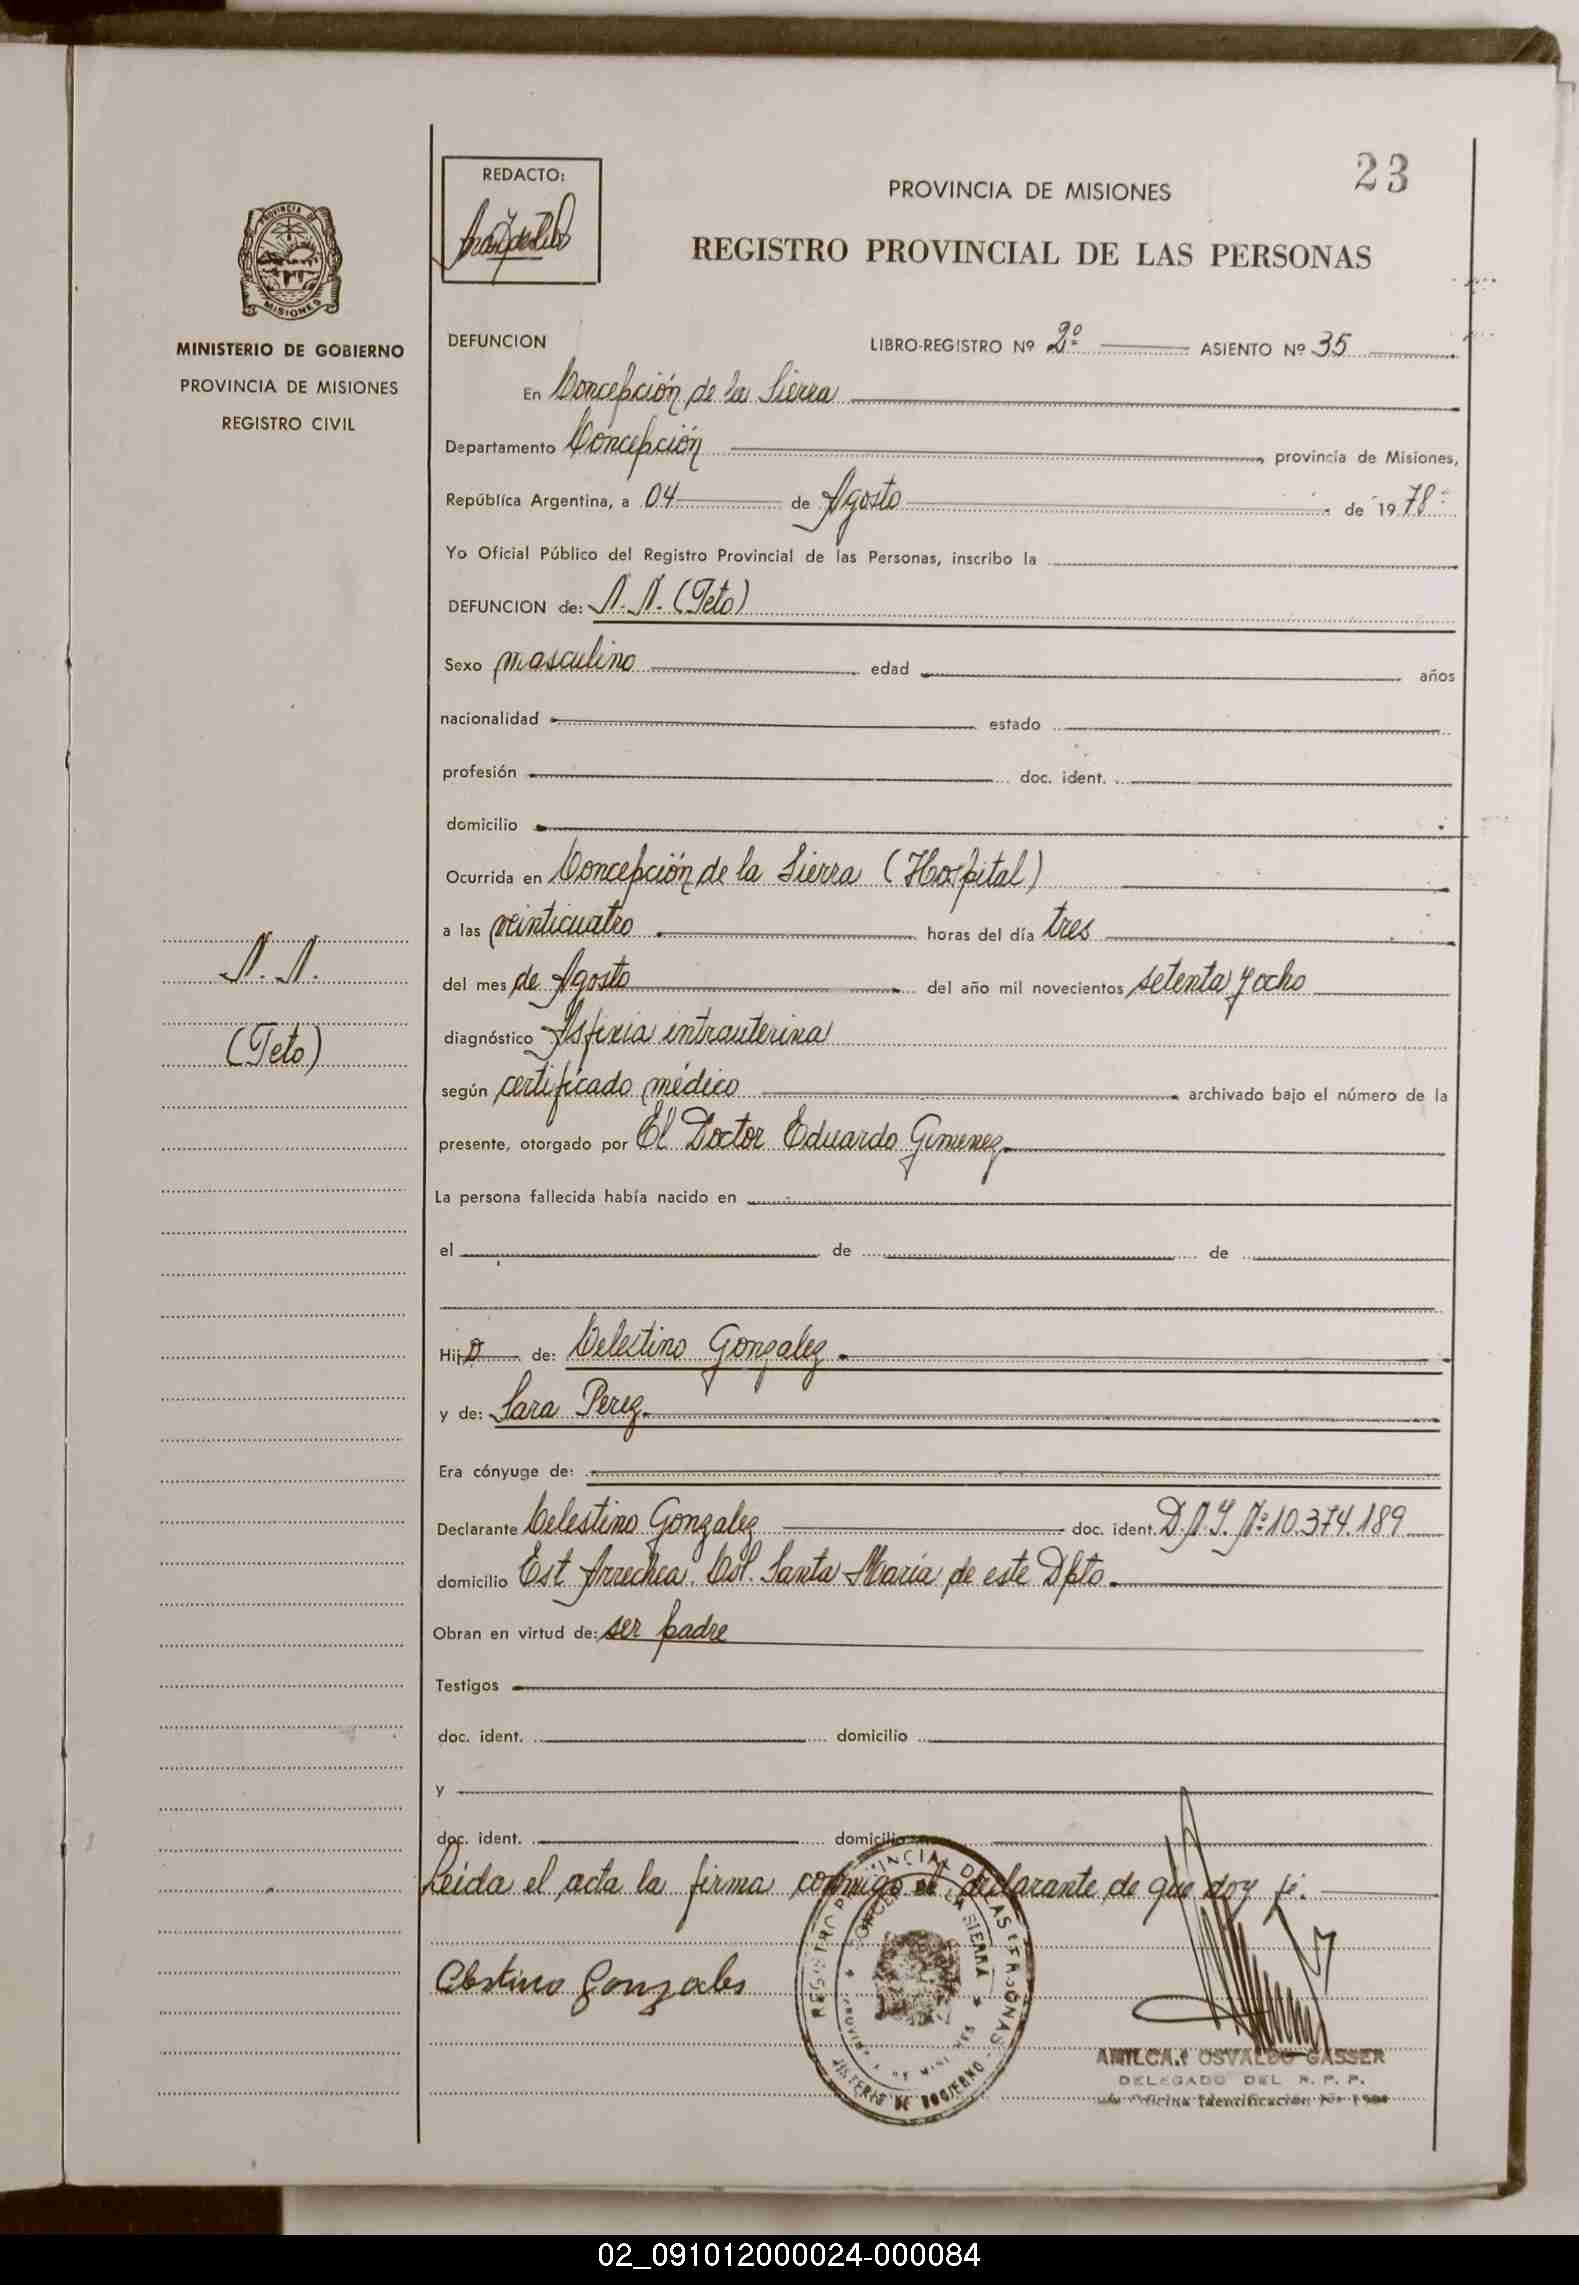 23
REDACTO:
PROVINCIA DE MISIONES
REGISTRO PROVINCIAL DE LAS PERSONAS
PROVINCIA DE
MISIONES
MINISTERIO DE GOBIERNO
PROVINCIA DE MISIONES
REGISTRO CIVIL
DEFUNCION LIBRO-REGISTRO Nº 2º ASIENTO Nº 35
En Concepción de la Sierra
Departamento Concepción, provincia de Misiones,
República Argentina, a 04 de Agosto de 1978
Yo Oficial Público del Registro Provincial de las Personas, inscribo la
DEFUNCION de: N.N. (Feto)
Sexo masculino edad años
nacionalidad estado
profesión doc. ident.
domicilio
Ocurrida en Concepción de la Sierra (Hospital)
a las veinticuatro horas del día tres
del mes de Agosto del año mil novecientos setenta y ocho
N. N.
(Feto)
diagnóstico Asfixia intrauterina
según certificado médico archivado bajo el número de la
presente, otorgado por El Doctor Eduardo Gimenez
La persona fallecida había nacido en
el de de
Hijo de: Celestino Gonzalez
y de: Sara Perez
Era cónyuge de:
Declarante Celestino Gonzalez doc. ident. D.N.I. Nº 10.374.189
domicilio Est Arrechea. Col. Santa María de este Dpto.
Obran en virtud de: ser padre
Testigos
doc. ident. domicilio
y
doc. ident. domicilio
Leida el acta la firma conmigo el declarante de que doy fé.
Celestino Gonzales
REGISTRO PROVINCIAL DE LAS PERSONAS
CONCEPCION DE LA SIERRA
PROVINCIA DE MISIONES
MINISTERIO DE GOBIERNO
AMILCAR OSVALDO GASSER
DELEGADO DEL R. P. P.
Oficina Identificación
02_091012000024-000084